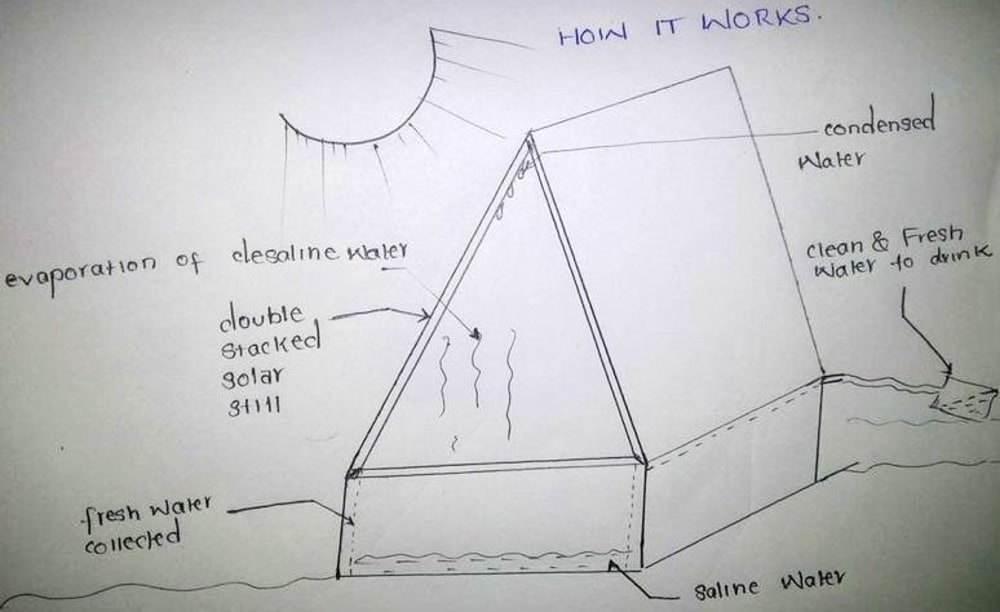 HOW IT WORKS.
condensed
Water
clean & Fresh
Water to drink
evaporation of desaline water
double
stacked
solar
still
fresh water
collected
saline Water